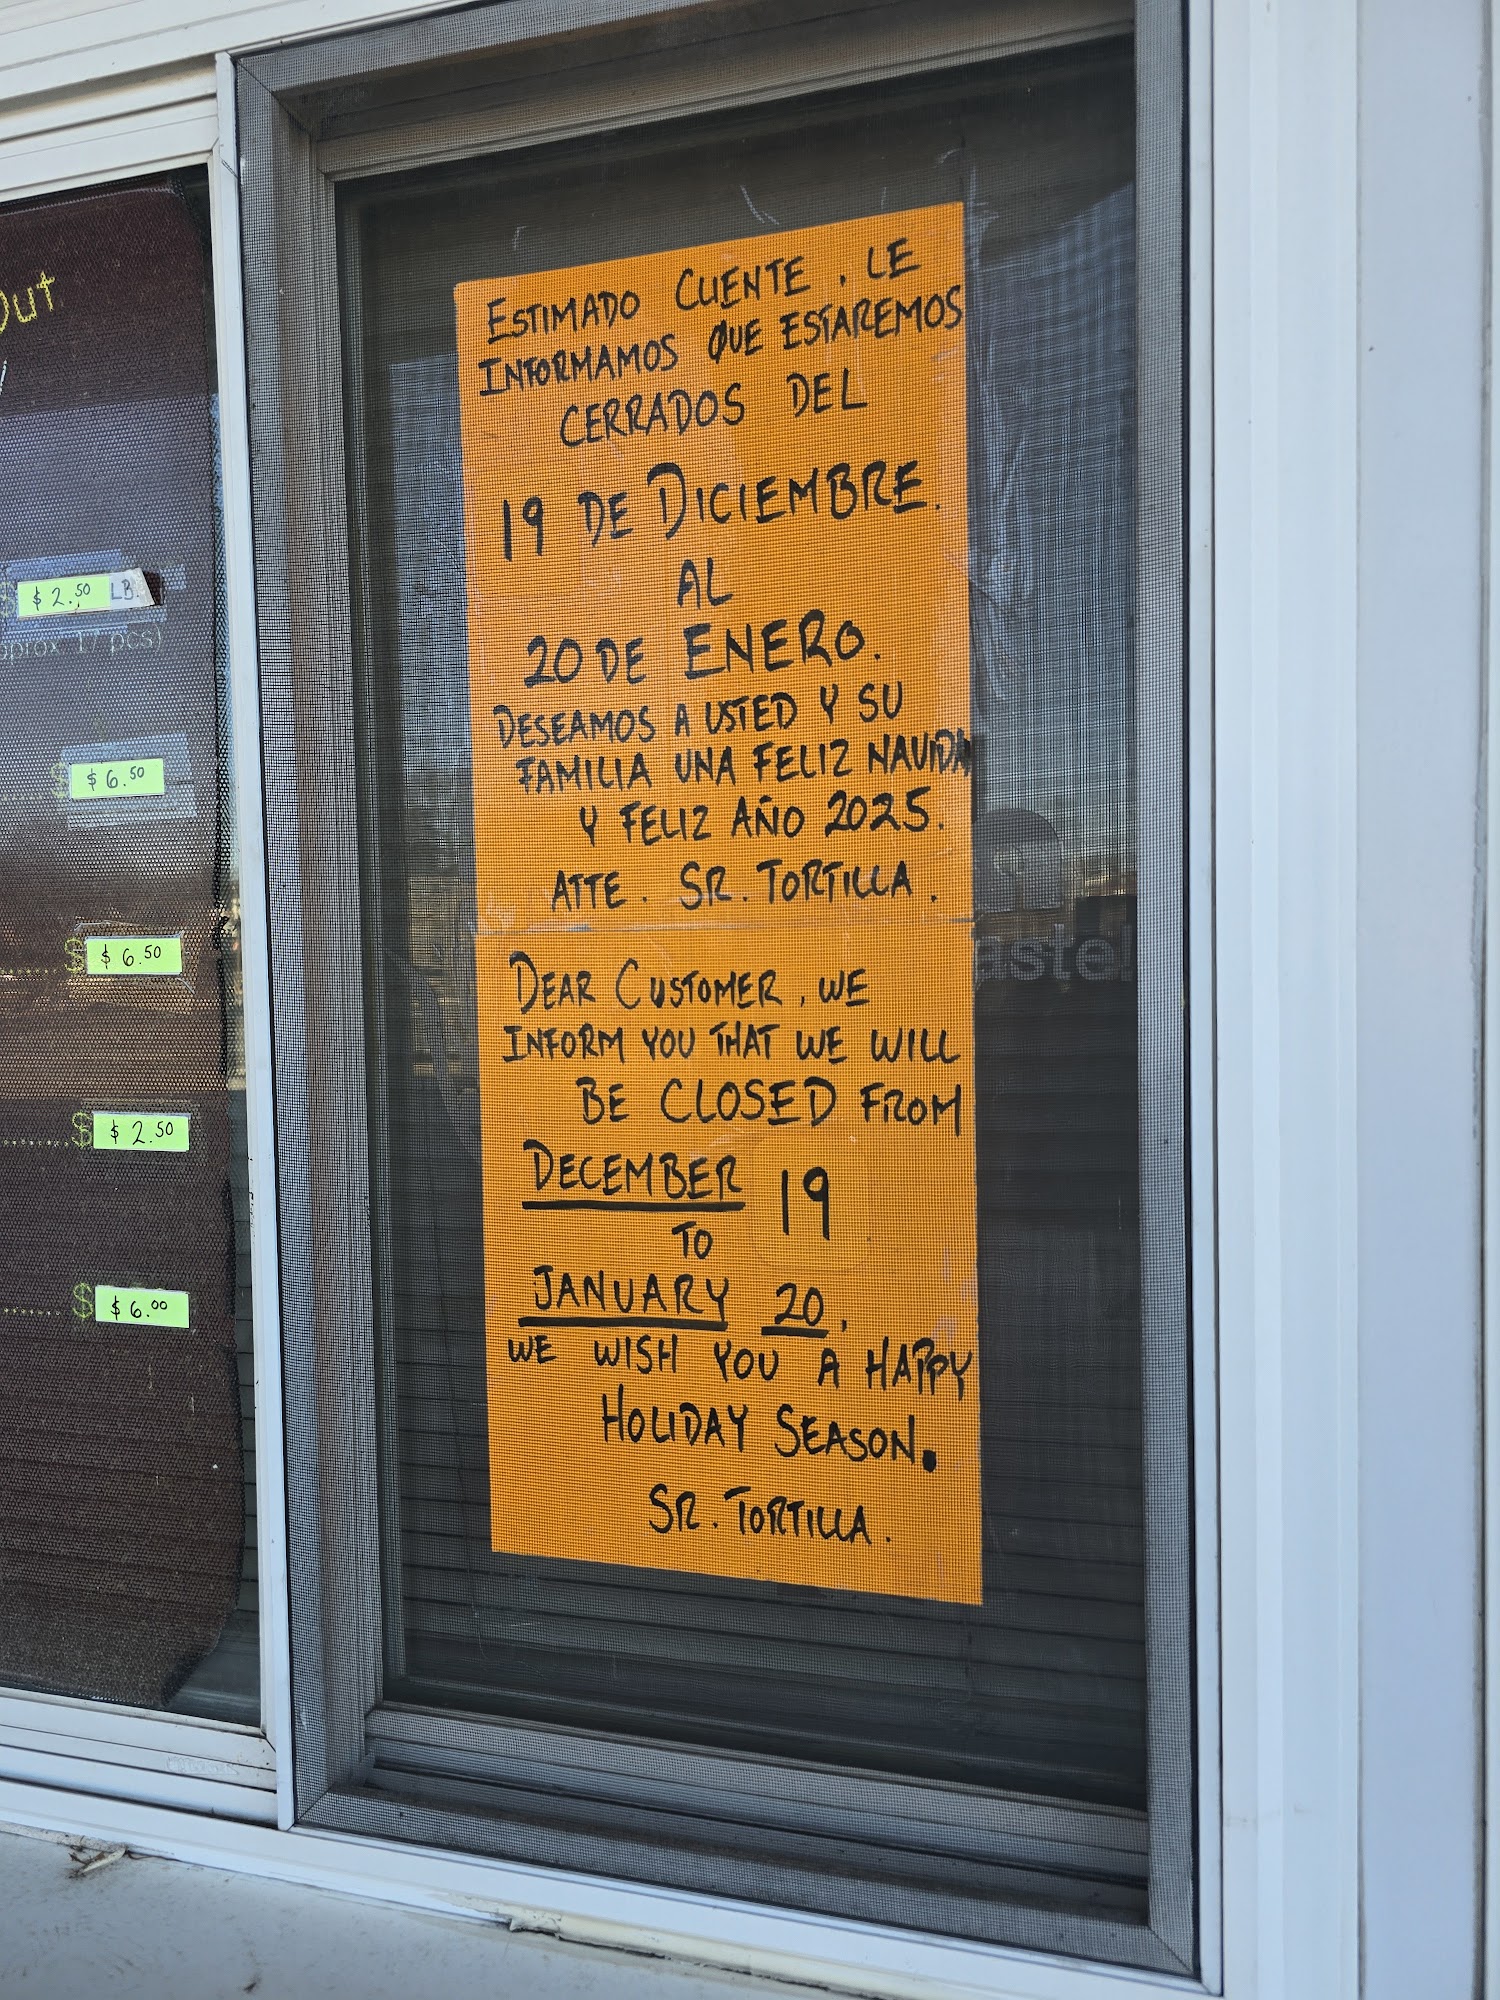 out
$ 2.50 LB.
pprox 17 pcs)
$ $ 6.50
$ $ 6.50
$ $ 2.50
$ $ 6.00
ESTIMADO CLIENTE, LE
INFORMAMOS QUE ESTAREMOS
CERRADOS DEL
19 DE DICIEMBRE.
AL
20 DE ENERO.
DESEAMOS A USTED Y SU
FAMILIA UNA FELIZ NAVIDA
Y FELIZ AÑO 2025.
ATTE. SR. TORTILLA.
DEAR CUSTOMER, WE
INFORM YOU THAT WE WILL
BE CLOSED FROM
DECEMBER 19
TO
JANUARY 20.
WE WISH YOU A HAPPY
HOLIDAY SEASON.
SR. TORTILLA.